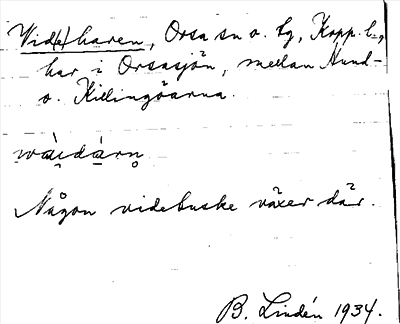 Vid(e)haren, Orsa sn o. tg, Kopp. l.,
har i Orsasjön, mellan Hund-
o. Killingöarna.
wàidárn
Någon videbuske växer där.
B. Lindén 1934.